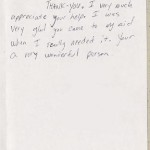 Thank-you, I very much
appreciate your help. I was
very glad you came to my aid
when I really needed it. Your
a very wonderful person.